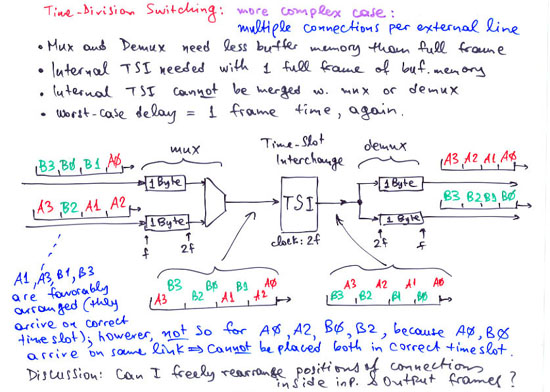 Time-Division Switching: more complex case:
multiple connections per external line
• Mux and Demux need less buffer memory than full frame
• Internal TSI needed with 1 full frame of buf. memory
• Internal TSI cannot be merged w. mux or demux
• worst-case delay = 1 frame time, again.
mux
Time-Slot
Interchange
demux
B3 BØ B1 AØ
1 Byte
A3 B2 A1 A2
1 Byte
f
2f
TSI
clock: 2f
1 Byte
A3 A2 A1 AØ
1 Byte
B3 B2 B1 BØ
2f
f
A3 B3 B2 BØ A1 B1 A2 AØ
B3 A3 B2 A2 B1 A1 BØ AØ
A1, A3, B1, B3
are favorably
arranged (they
arrive on correct
timeslot); however, not so for AØ, A2, BØ, B2, because AØ, BØ
arrive on same link ⇒ cannot be placed both in correct timeslot.
Discussion: Can I freely rearrange positions of connections
inside inp. & output frames?